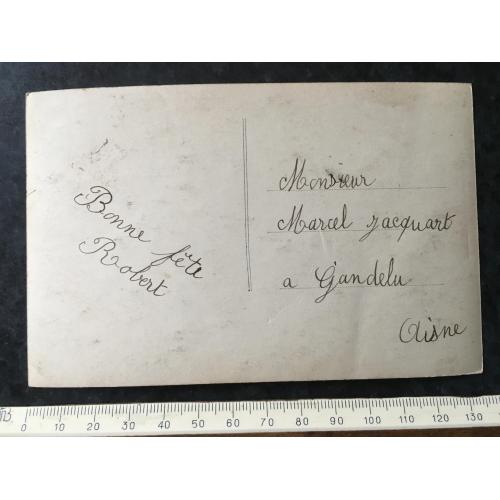 Bonne fête
Robert
Monsieur
Marcel Jacquart
a Gandelu
Aisne
0 10 20 30 40 50 60 70 80 90 100 110 120 130